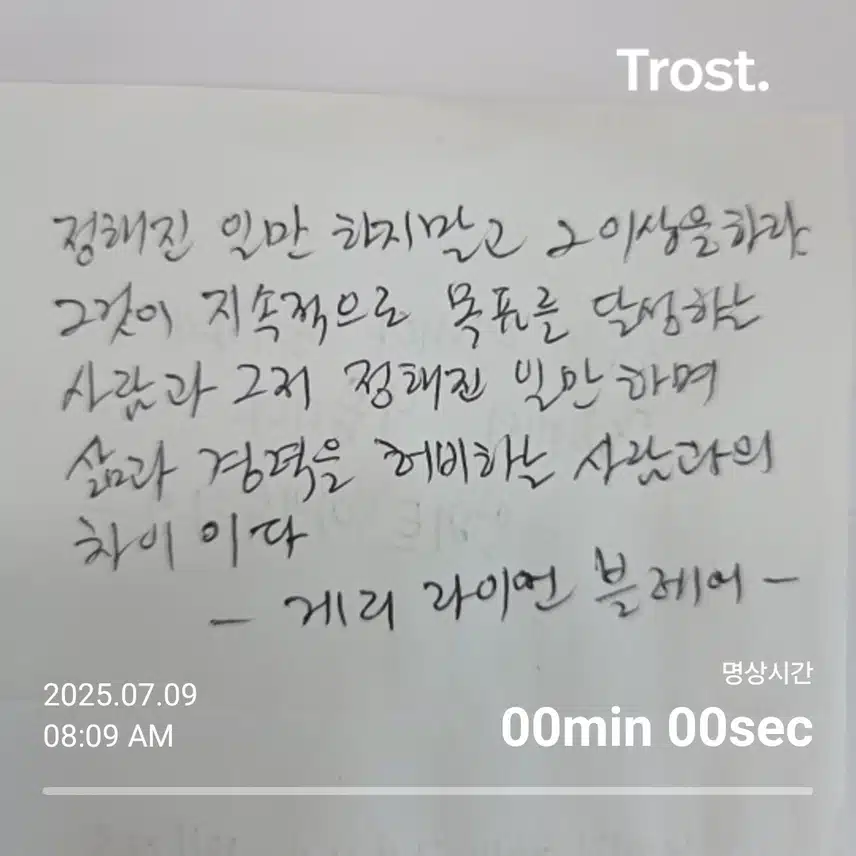 Trost.
정해진 일만 하지말고 그 이상을하라
그것이 지속적으로 목표를 달성하는
사람과 그저 정해진 일만 하며
삶과 경력을 허비하는 사람과의
차이 이다
- 게리 라이언 블레어 -
2025.07.09
08:09 AM
명상시간
00min 00sec